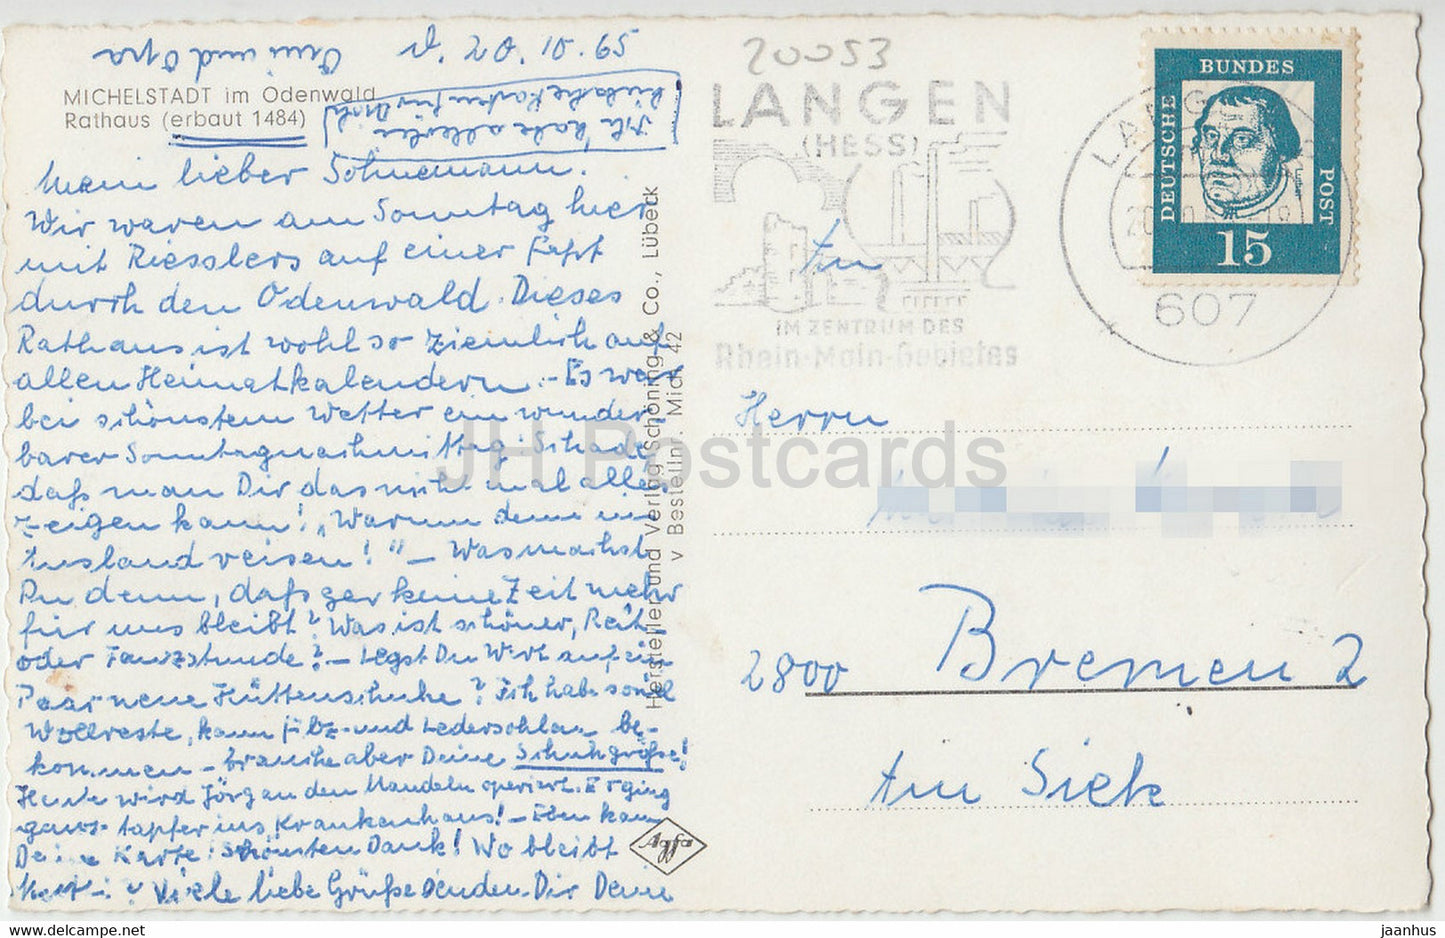 Omi und Opa
d. 20.10.65
MICHELSTADT im Odenwald
Rathaus (erbaut 1484)
Ich habe allerlei
hübsche Karten für Dich
Mein lieber Sohnemann.
Wir waren am Sonntag hier
mit Riesslers auf einer Fahrt
durch den Odenwald. Dieses
Rathaus ist wohl so ziemlich auf
allen Heimatkalendern. - Es war
bei schönstem Wetter ein wunder-
barer Sonntagnachmittag. Schade
daß man Dir das nicht mal alles
zeigen kann! „Warum denn ins
Ausland reisen!" - Was machst
Du denn, daß gar keine Zeit mehr
für uns bleibt? Was ist schöner, Reit-
oder Tanzstunde? - Legst Du Wert auf ein
Paar neue Hüttenschuhe? Ich habe soviel
Wollreste, kann Filz- und Ledersohlen be-
kommen - brauche aber Deine Schuhgröße!
Heute wird Jörg an den Mandeln operiert. Er ging
ganz tapfer ins Krankenhaus! - Eben kam
Deine Karte! Schönsten Dank! Wo bleibt
? Viele liebe Grüße senden Dir Deine
Hersteller und Verlag Schöning & Co., Lübeck
v Bestellnr. Mich 42
Agfa
20053
LANGEN
(HESS)
IM ZENTRUM DES
Rhein-Main-Gebietes
LANGEN
607
DEUTSCHE
BUNDES
POST
15
An
Herrn
2800 Bremen 2
Am Siek
JH Postcards
www.hippostcard.com
jaanhus